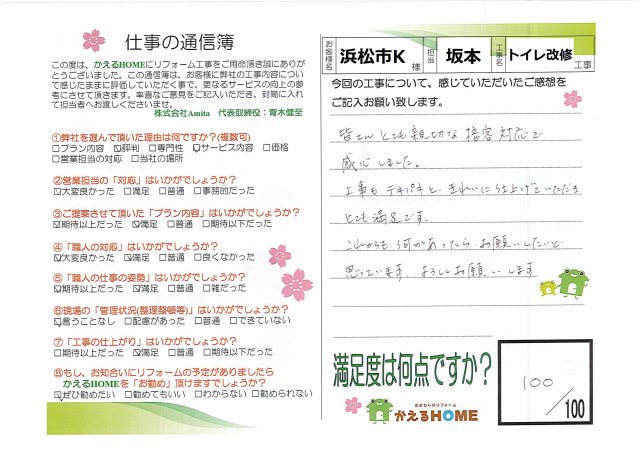 仕事の通信簿
この度は、かえるHOMEにリフォーム工事をご用命頂き誠にありが
とうございました。この通信簿は、お客様に弊社の工事内容につい
て感じたままに評価していただく事で、更なるサービスの向上の参
考にさせて頂きます。率直なご意見をご記入いただき、封筒に入れ
て担当者へお渡しくださいませ。
株式会社Amita 代表取締役：青木健至
①弊社を選んで頂いた理由は何ですか?(複数可)
□プラン内容 ☑評判 □専門性 ☑サービス内容 □価格
□営業担当の対応 □当社の場所
②営業担当の「対応」はいかがでしょうか?
☑大変良かった □満足 □普通 □事務的だった
③ご提案させて頂いた「プラン内容」はいかがでしょうか?
☑期待以上だった ☑満足 □普通 □期待以下だった
④「職人の対応」はいかがでしょうか?
☑大変良かった ☑満足 □普通 □良くなかった
⑤「職人の仕事の姿勢」はいかがでしょうか?
☑期待以上だった ☑満足 □普通 □雑だった
⑥現場の「管理状況(整理整頓等)」はいかがでしょうか?
☑言うことなし □配慮があった □普通 □できていない
⑦「工事の仕上がり」はいかがでしょうか?
□期待以上だった ☑満足 □普通 □期待以下だった
⑧もし、お知合いにリフォームの予定がありましたら
かえるHOMEを「お勧め」頂けますでしょうか?
☑ぜひ勧めたい □勧めてもいい □わからない □勧められない
お客様名 浜松市K 様 担当 坂本 工事名 トイレ改修 工事
今回の工事について、感じていただいたご感想を
ご記入お願い致します。
皆さんとても親切な接客対応で
感心しました。
工事もテキパキと、きれいに仕上げていただき
とても満足です。
これからも、何かあったらお願いしたいと
思っています。よろしくお願いします
満足度は何点ですか?
100
/100
水まわりのリフォーム
かえるHOME